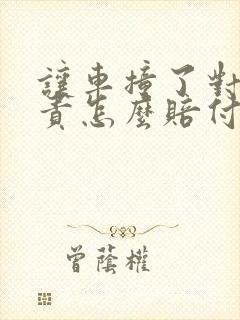 讓車撞了對
責怎麼賠付
曾蔭權